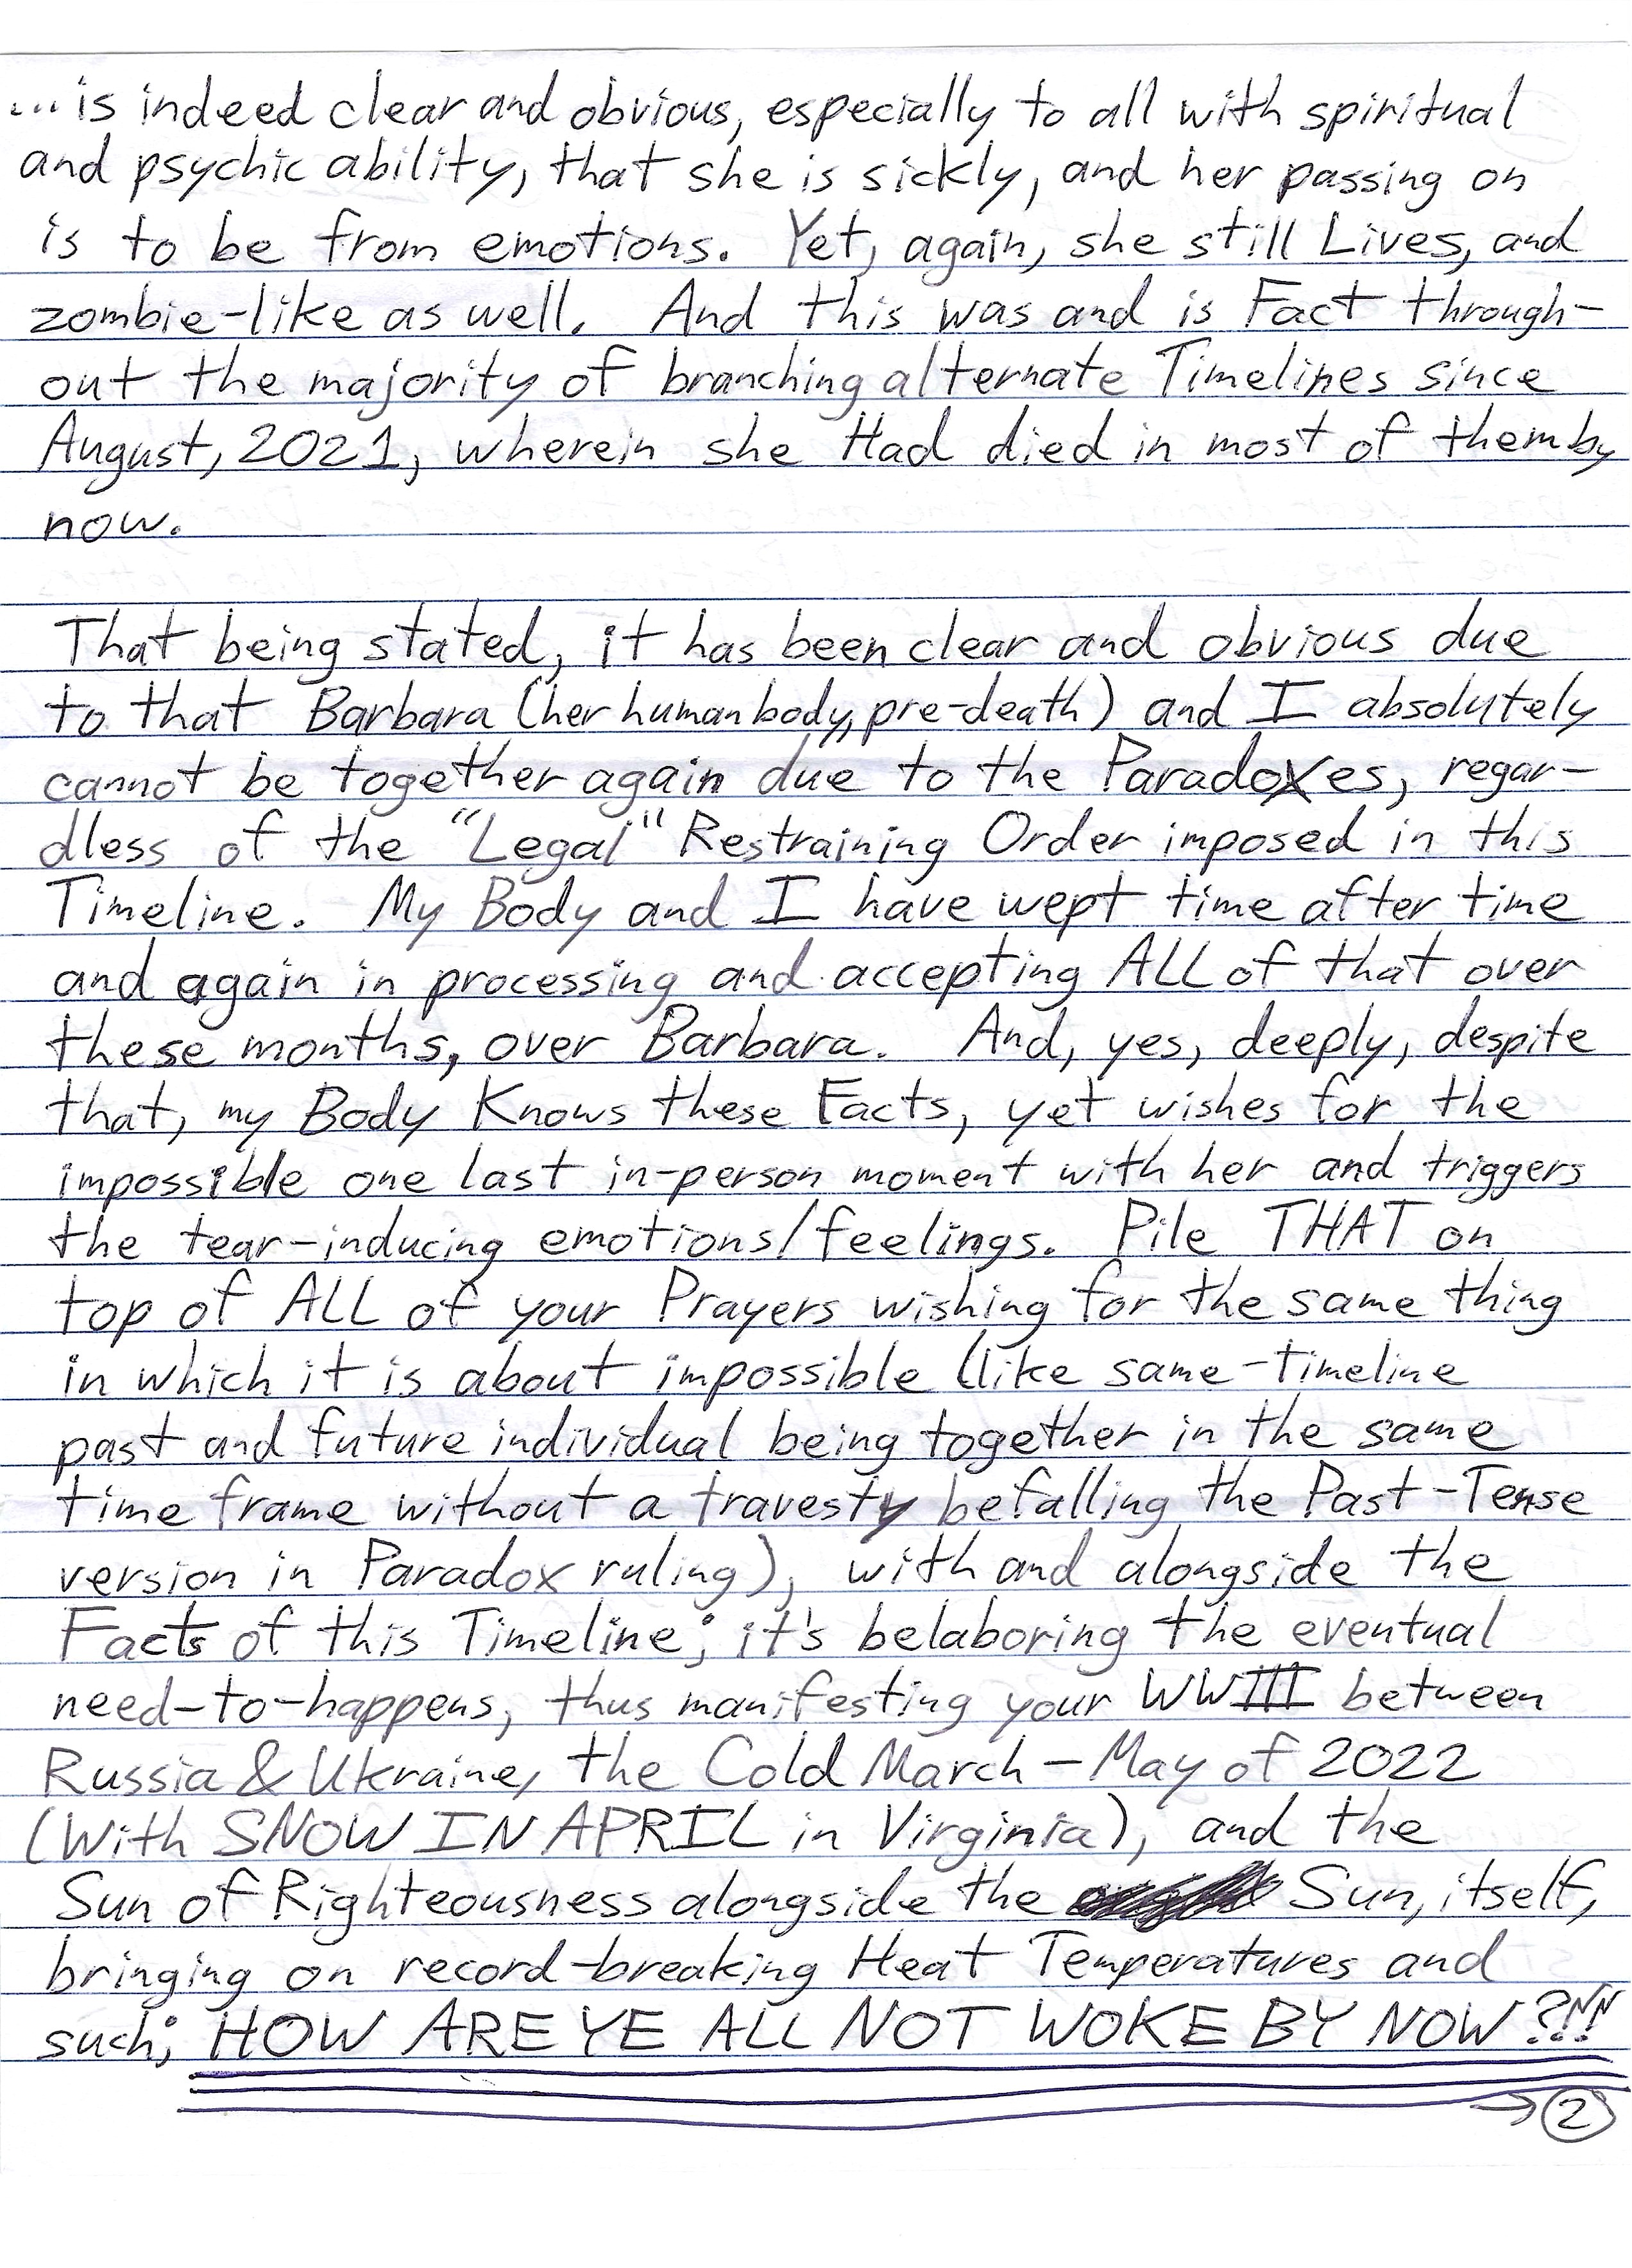 ...is indeed clear and obvious, especially to all with spiritual
and psychic ability, that she is sickly, and her passing on
is to be from emotions. Yet, again, she still Lives, and
zombie-like as well. And this was and is Fact through-
out the majority of branching alternate Timelines since
August, 2021, wherein she Had died in most of them by
now.
That being stated, it has been clear and obvious due
to that Barbara (her human body, pre-death) and I absolutely
cannot be together again due to the Paradoxes, regar-
dless of the "Legal" Restraining Order imposed in this
Timeline. My Body and I have wept time after time
and again in processing and accepting ALL of that over
these months, over Barbara. And, yes, deeply, despite
that, my Body Knows these Facts, yet wishes for the
impossible one last in-person moment with her and triggers
the tear-inducing emotions/feelings. Pile THAT on
top of ALL of your Prayers wishing for the same thing
in which it is about impossible (like same-timeline
past and future individual being together in the same
time frame without a travesty befalling the Past-Tense
version in Paradox ruling), with and alongside the
Facts of this Timeline; it's belaboring the eventual
need-to-happens, thus manifesting your WWIII between
Russia & Ukraine, the Cold March-May of 2022
(With SNOW IN APRIL in Virginia), and the
Sun of Righteousness alongside the Sun, itself,
bringing on record-breaking Heat Temperatures and
such; HOW ARE YE ALL NOT WOKE BY NOW?!!!
→2